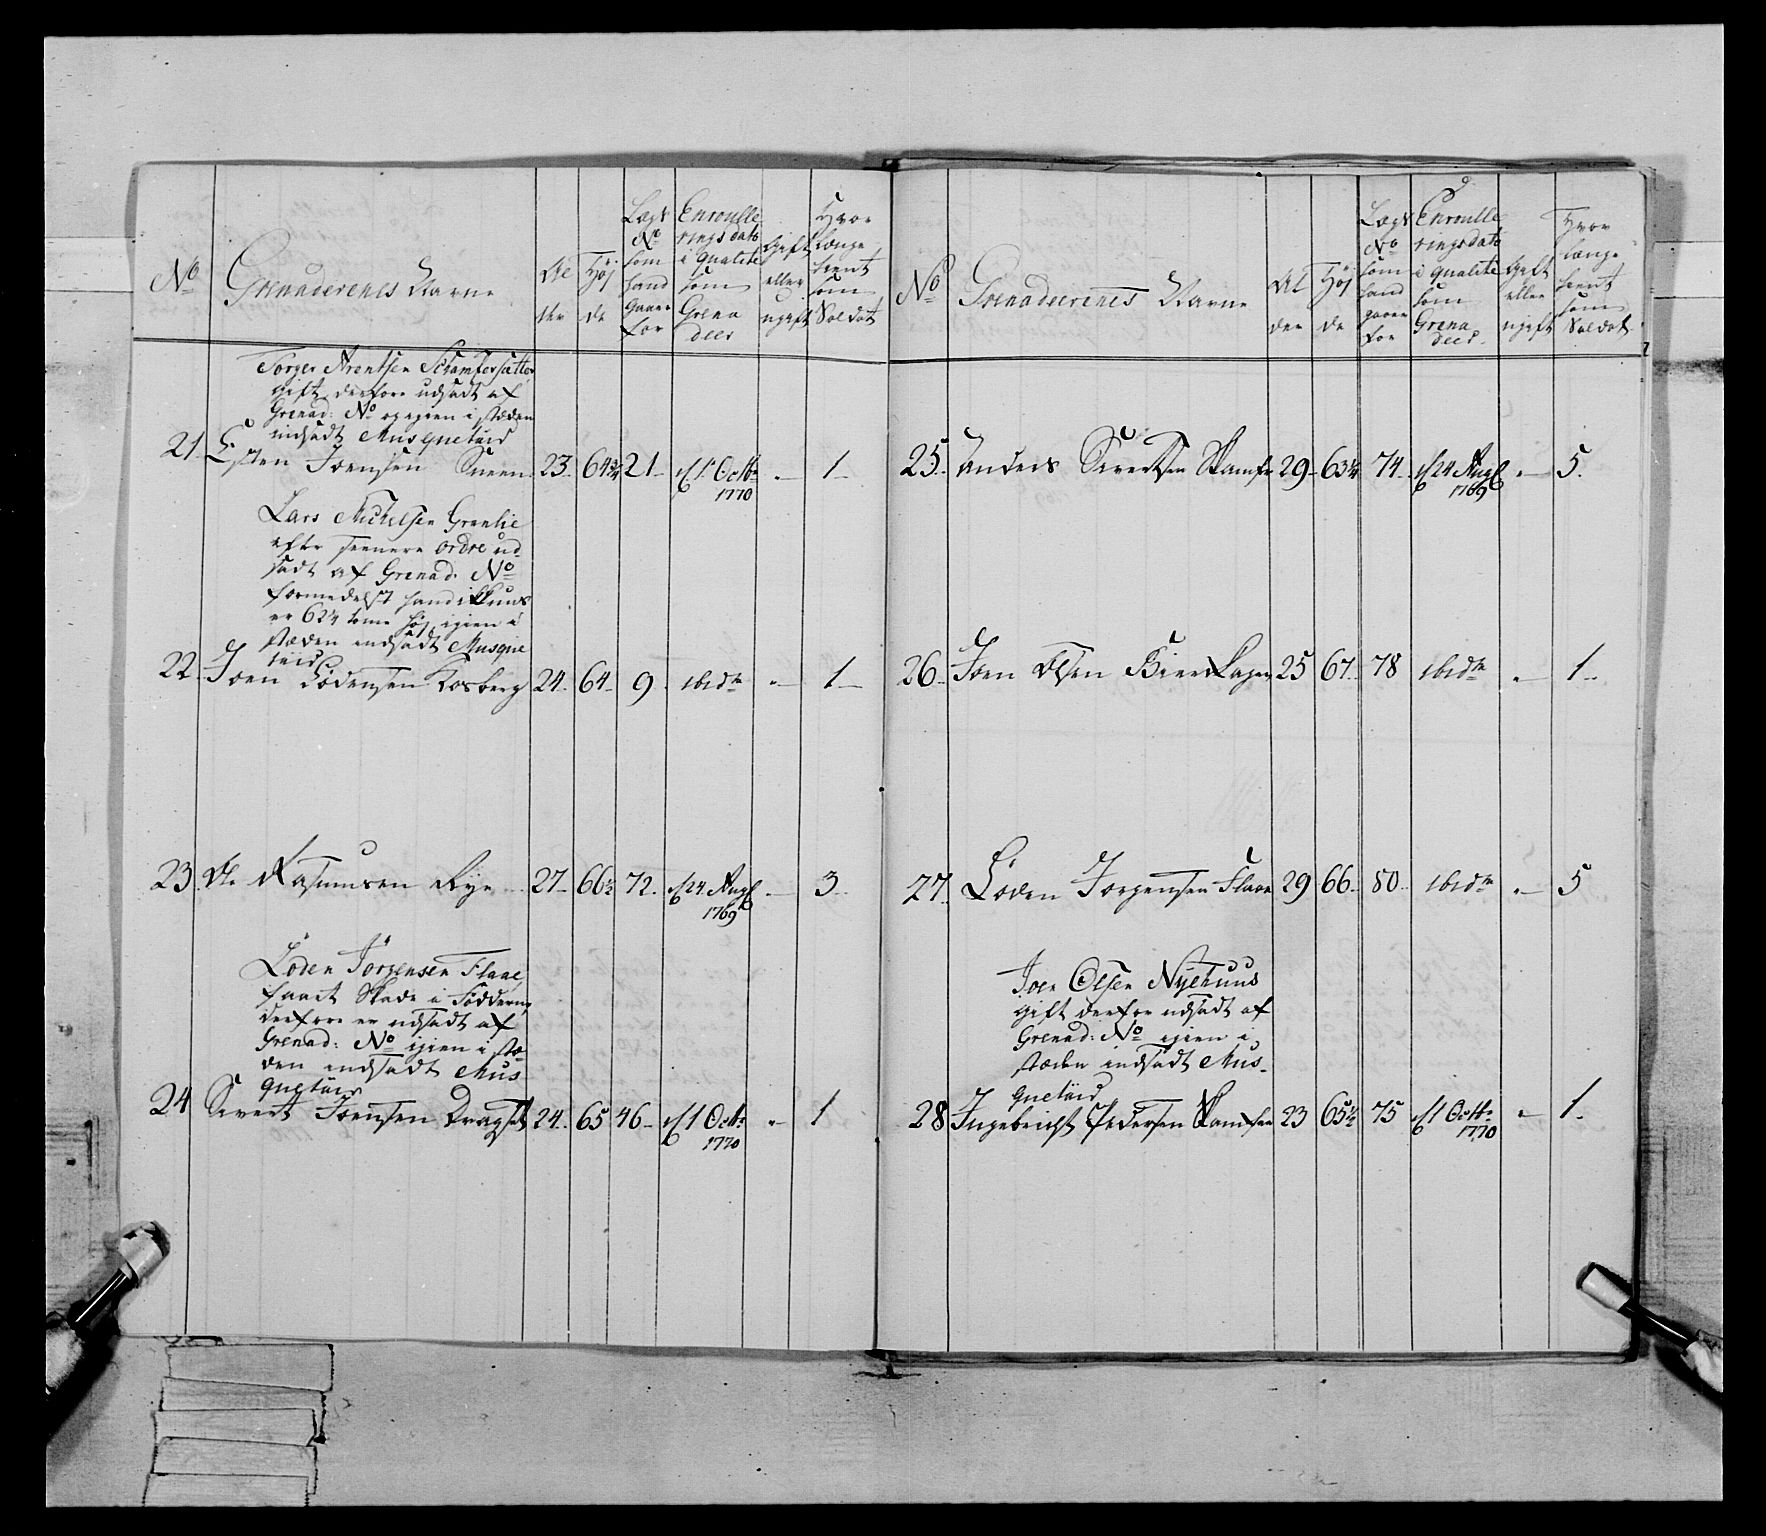 No
Grenaderenes Navne
Al
der
Høj
de
Lægs
No
som
hand
gaaer
for
Enroulle
rings dato
i qualite
som
Grena
deer
Gift
eller
ugift
Hvor
længe
tient
som
Soldat
Torger Arentsen Schamfersætter
gift, derfore udsadt af
Grenad: No og igien i stæden
indsadt Musquetaird
21. Esten Joensen Sneen 23. 64 3/4 21 d. 1te Octbr 1770 - 1
Lars Michelsen Grønlie
efter seenere ordre ud-
sadt af Grenad. No
formedelst hand ikkuns
er 62 1/4 tome høj, igien i
stæden indsadt Musque
taird
22. Joen Lodensen Kosberg 24. 64 9 ibidm - 1
23. Ole Rasmusen Rye 27 66 1/2 72. d. 24 Aug 1769 - 3
Loden Jörgensen Flaae,
faaet Skade i Fødderne,
derfore er udsadt af
Grenad: No igien i stæ-
den indsadt Mus-
quetaird
24 Sivert Joensen Dragset 24. 65 46 d. 1 Octbr 1770 - 1
No
Grenadeerenes Navne
Al
der
Høj
de
Lægs
No
som
hand
gaaer
for
Enroulle
ringsdato
i qualite
som
Grena
deer.
Gift
eller
ugift
Hvor
længe
tient
som
Soldat
25. Anders Sivertsen Skamfer 29 63 1/4 74. d. 24 Aug 1769 - 5.
26. Joen Olsen 25 67. 78 ibidm - 1
27. Loden Jørgensen Flaae 29 66 80 ibidm - 5
Joen Olsen Nyehuus
gift derfor udsadt af
Grenad: No igien i
stæden indsadt Mus-
quetaird
28 Ingebricht Pedersen Skamfer 23 65 1/2 75 d. 1 Octbr 1770 - 1.